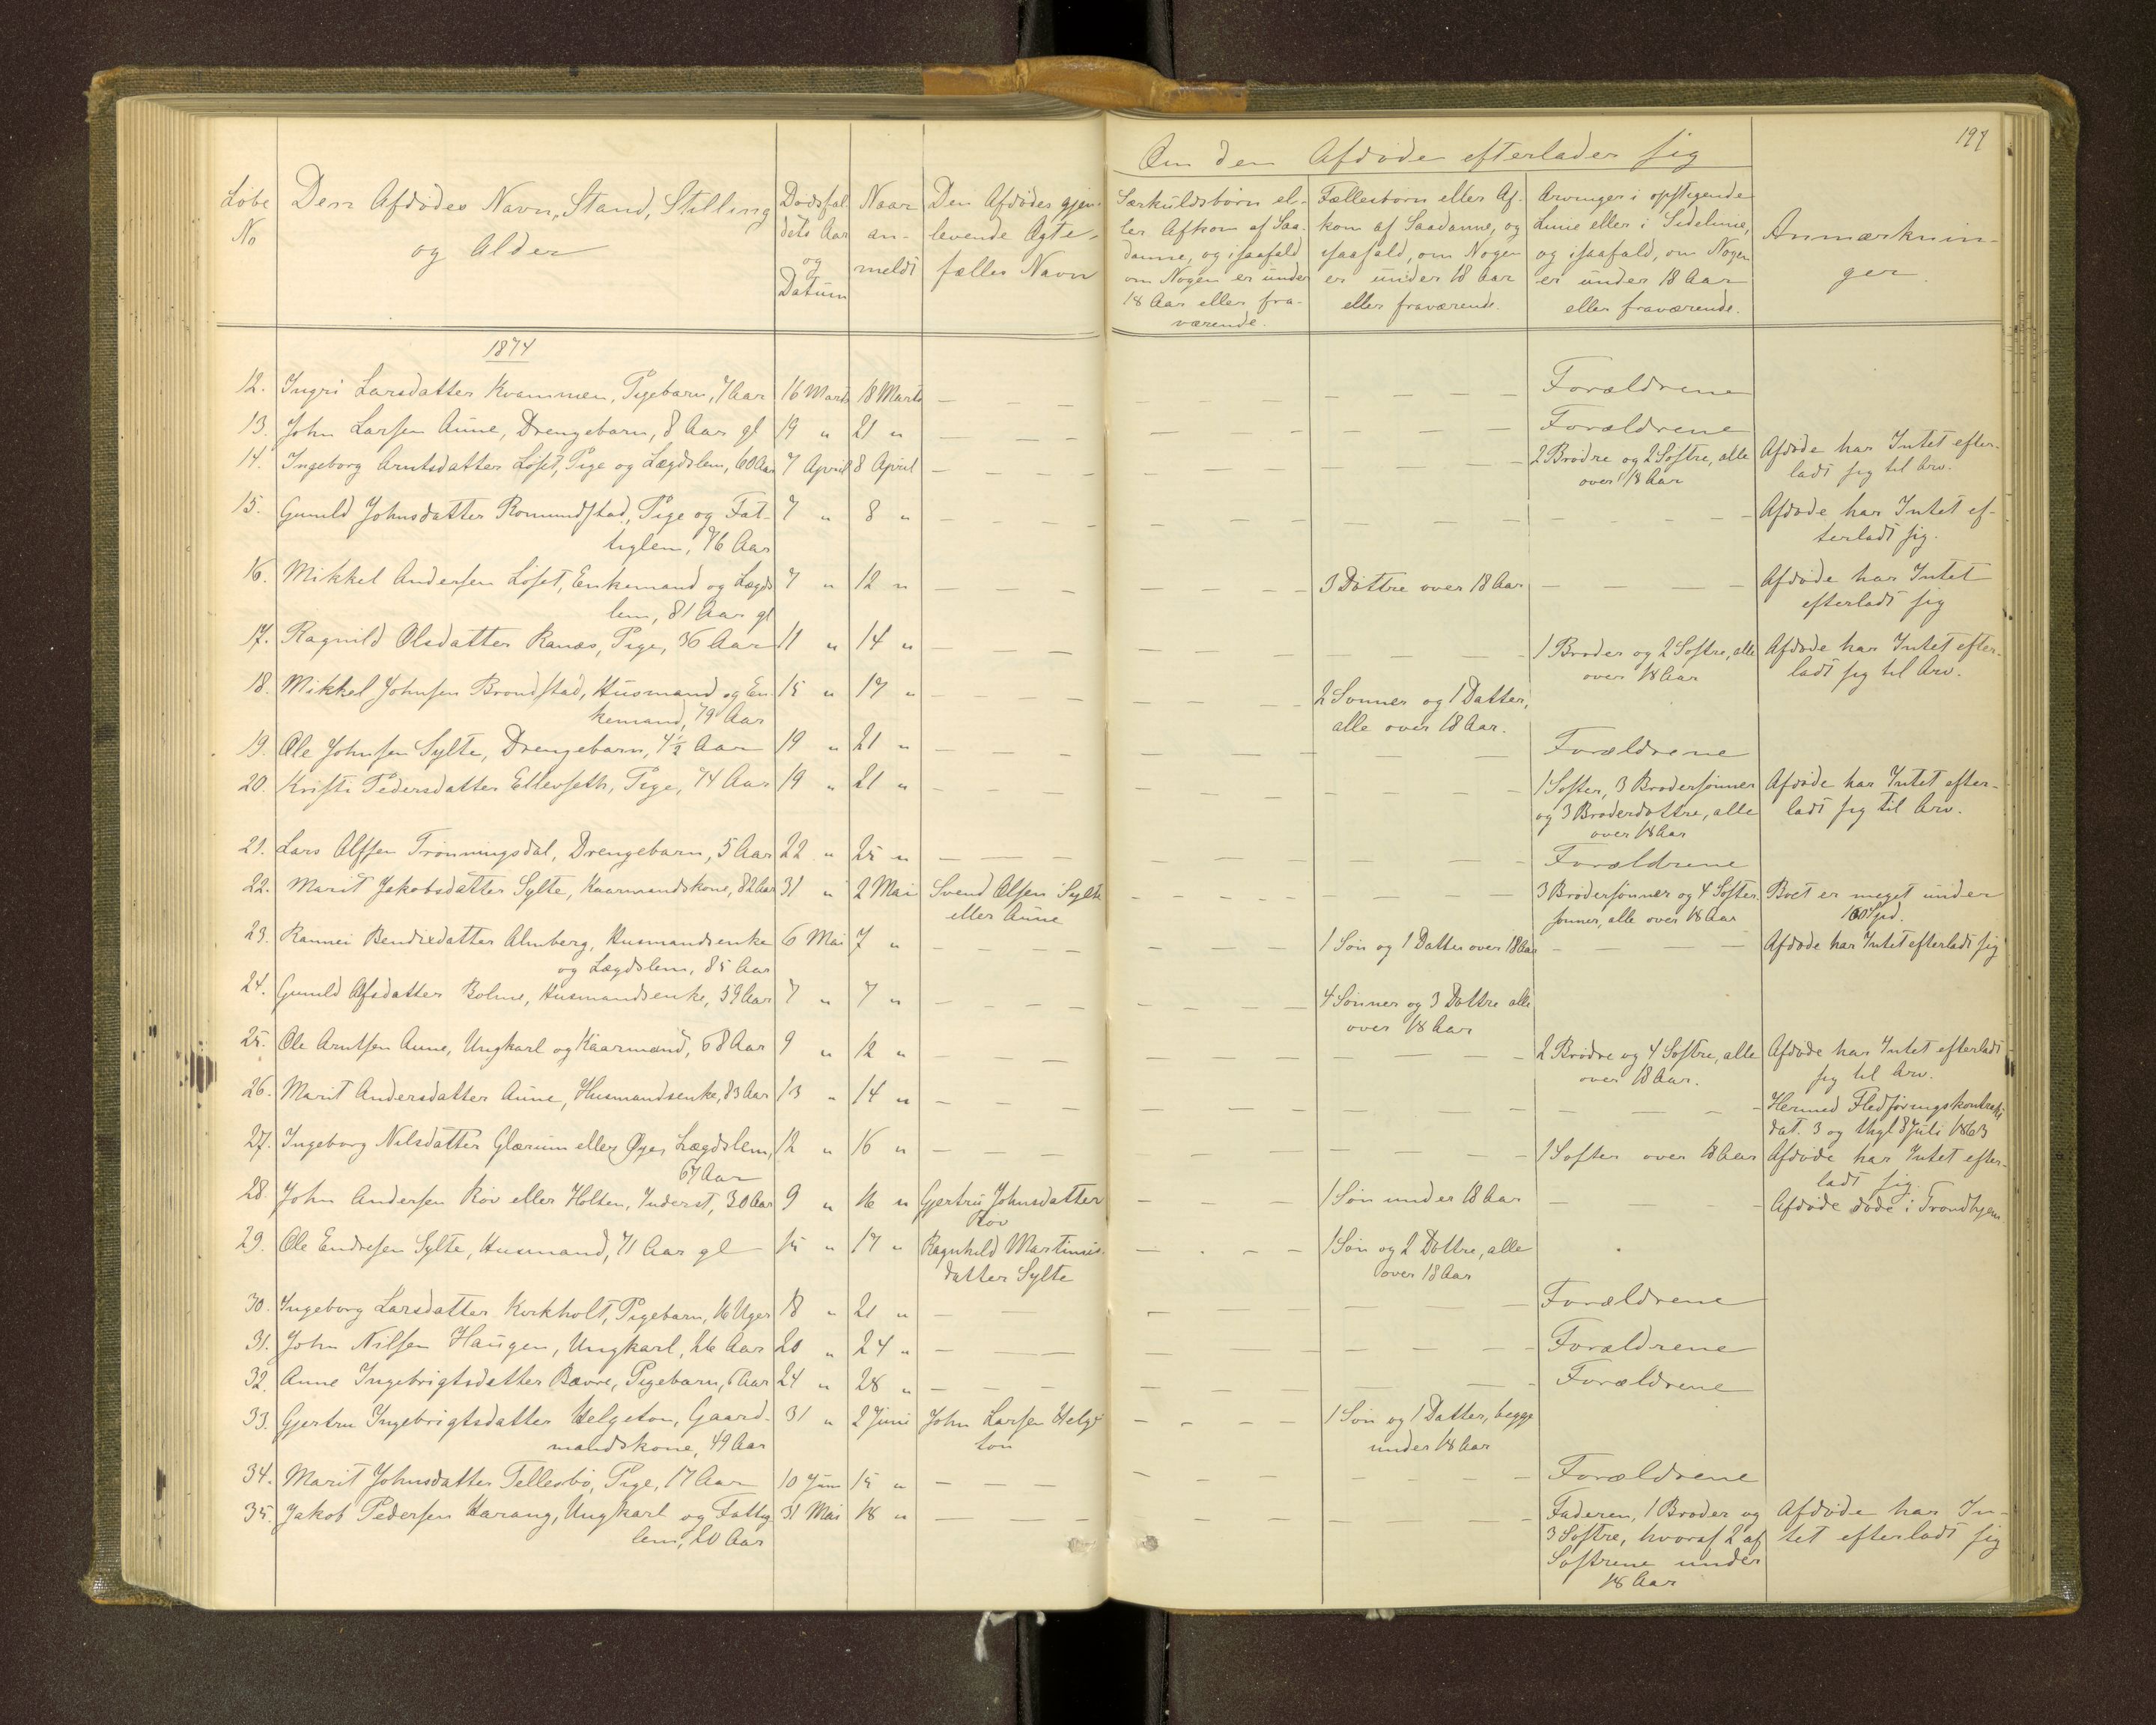 197
Om den Afdøde efterlader sig
Løbe No
Den Afdødes Navn, Stand, Stilling og Alder
Dødsfaldets Aar og Datum
Naar anmeldt
Den Afdødes gjenlevende Ægtefælles Navn
Særkuldsbørn eller Afkom af Saadanne, og isaafald om Nogen er under 18 Aar eller fraværende.
Fællesbørn eller Afkom af Saadanne, og isaafald, om Nogen er under 18 Aar eller fraværende.
Arvinger i opstigende Linie eller i Sidelinie, og isaafald, om Nogen er under 18 Aar eller fraværende.
Anmærkninger
1874
12. Ingri Larsdatter Kvammen, Pigebarn, 7 Aar 16 Marts 18 Marts Forældrene
13. John Larsen Aune, Drengebarn, 8 Aar gl 19 " 21 " Forældrene
14. Ingeborg Arntsdatter Løset, Pige og Lægdslem, 60 Aar 7 April 8 April 2 Brødre og 2 Søstre, alle over 18 Aar Afdøde har Intet efterladt sig til Arv.
15. Gunild Johnsdatter Romundstad, Pige og Fattiglem, 76 Aar 7 " 8 " Afdøde har Intet efterladt sig.
16. Mikkel Andersen Løset, Enkemand og Lægdslem, 81 Aar gl 7 " 12 " 3 Døttre over 18 Aar Afdøde har Intet efterladt sig
17. Ragnild Olsdatter Ranæs, Pige, 36 Aar 11 " 14 " 1 Broder og 2 Søstre, alle over 18 Aar Afdøde har Intet efterladt sig til Arv.
18. Mikkel Johnsen Brøndstad, Husmand og Enkemand, 79 Aar 15 " 17 " 2 Sønner og 1 Datter, alle over 18 Aar.
19. Ole Johnsen Sylte, Drengebarn, 4½ Aar 19 " 21 " Forældrene
20. Kristi Pedersdatter Ellevseth, Pige, 74 Aar 19 " 21 " 1 Søster, 3 Brodersønner og 3 Broderdøttre, alle over 18 Aar Afdøde har Intet efterladt sig til Arv.
21. Lars Olsen Trønningsdal, Drengebarn, 5 Aar 22 " 25 " Forældrene
22. Marit Jakobsdatter Sylte, Kaarmandskone, 82 Aar 31 " 2 Mai Svend Olsen Sylte eller Aune 3 Brodersønner og 4 Søstersønner, alle over 18 Aar Boet er meget under 100 Spd.
23. Rannei Bendixdatter Almberg, Husmandsenke og Lægdslem, 85 Aar 6 Mai 7 " 1 Søn og 1 Datter over 18 Aar Afdøde har Intet efterladt sig
24. Gunild Olsdatter Bolme, Husmandsenke, 59 Aar 7 " 7 " 4 Sønner og 3 Døttre alle over 18 Aar
25. Ole Arntsen Aune, Ungkarl og Kaarmand, 68 Aar 9 " 12 " 2 Brødre og 4 Søstre, alle over 18 Aar. Afdøde har Intet efterladt sig til Arv.
26. Marit Andersdatter Aune, Husmandsenke, 83 Aar 13 " 14 " Hermed Fledføringskontrakt dat. 3 og thgl 8 Juli 1863
27. Ingeborg Nilsdatter Glærum eller Øye, Lægdslem, 67 Aar 12 " 16 " 1 Søster over 18 Aar Afdøde har Intet efterladt sig.
28. John Andersen Røv eller Holten, Inderst, 30 Aar 9 " 16 " Gjertru Johnsdatter Røv 1 Søn under 18 Aar Afdøde døde i Trondhjem.
29. Ole Endresen Sylte, Husmand, 71 Aar gl 15 " 17 " Ragnhild Martinusdatter Sylte 1 Søn og 2 Døttre, alle over 18 Aar
30. Ingeborg Larsdatter Korkholt, Pigebarn, 16 Uger 18 " 21 " Forældrene
31. John Nilsen Haugen, Ungkarl, 26 Aar 20 " 24 " Forældrene
32. Anne Ingebrigtsdatter Bævre, Pigebarn, 6 Aar 24 " 28 " Forældrene
33. Gjertru Ingebrigtsdatter Helgeton, Gaardmandskone, 49 Aar 31 " 2 Juni John Larsen Helgeton 1 Søn og 1 Datter, begge under 18 Aar
34. Marit Johnsdatter Tellesbø, Pige, 17 Aar 10 Juni 15 " Forældrene
35. Jakob Pedersen Harang, Ungkarl og Fattiglem, 20 Aar 31 Mai 18 " Faderen, 1 Broder og 3 Søstre, hvoraf 2 af Søstrene under 18 Aar Afdøde har Intet efterladt sig